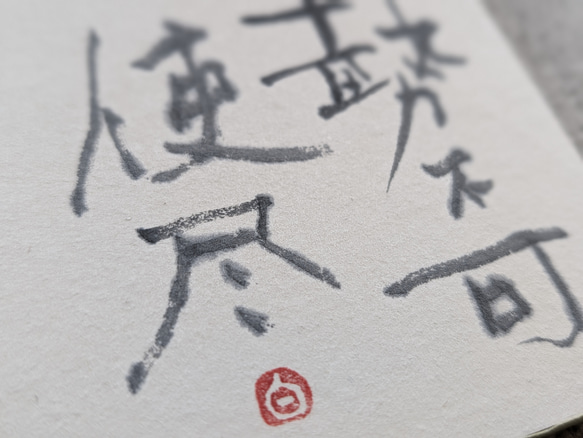 勢不可
使尽